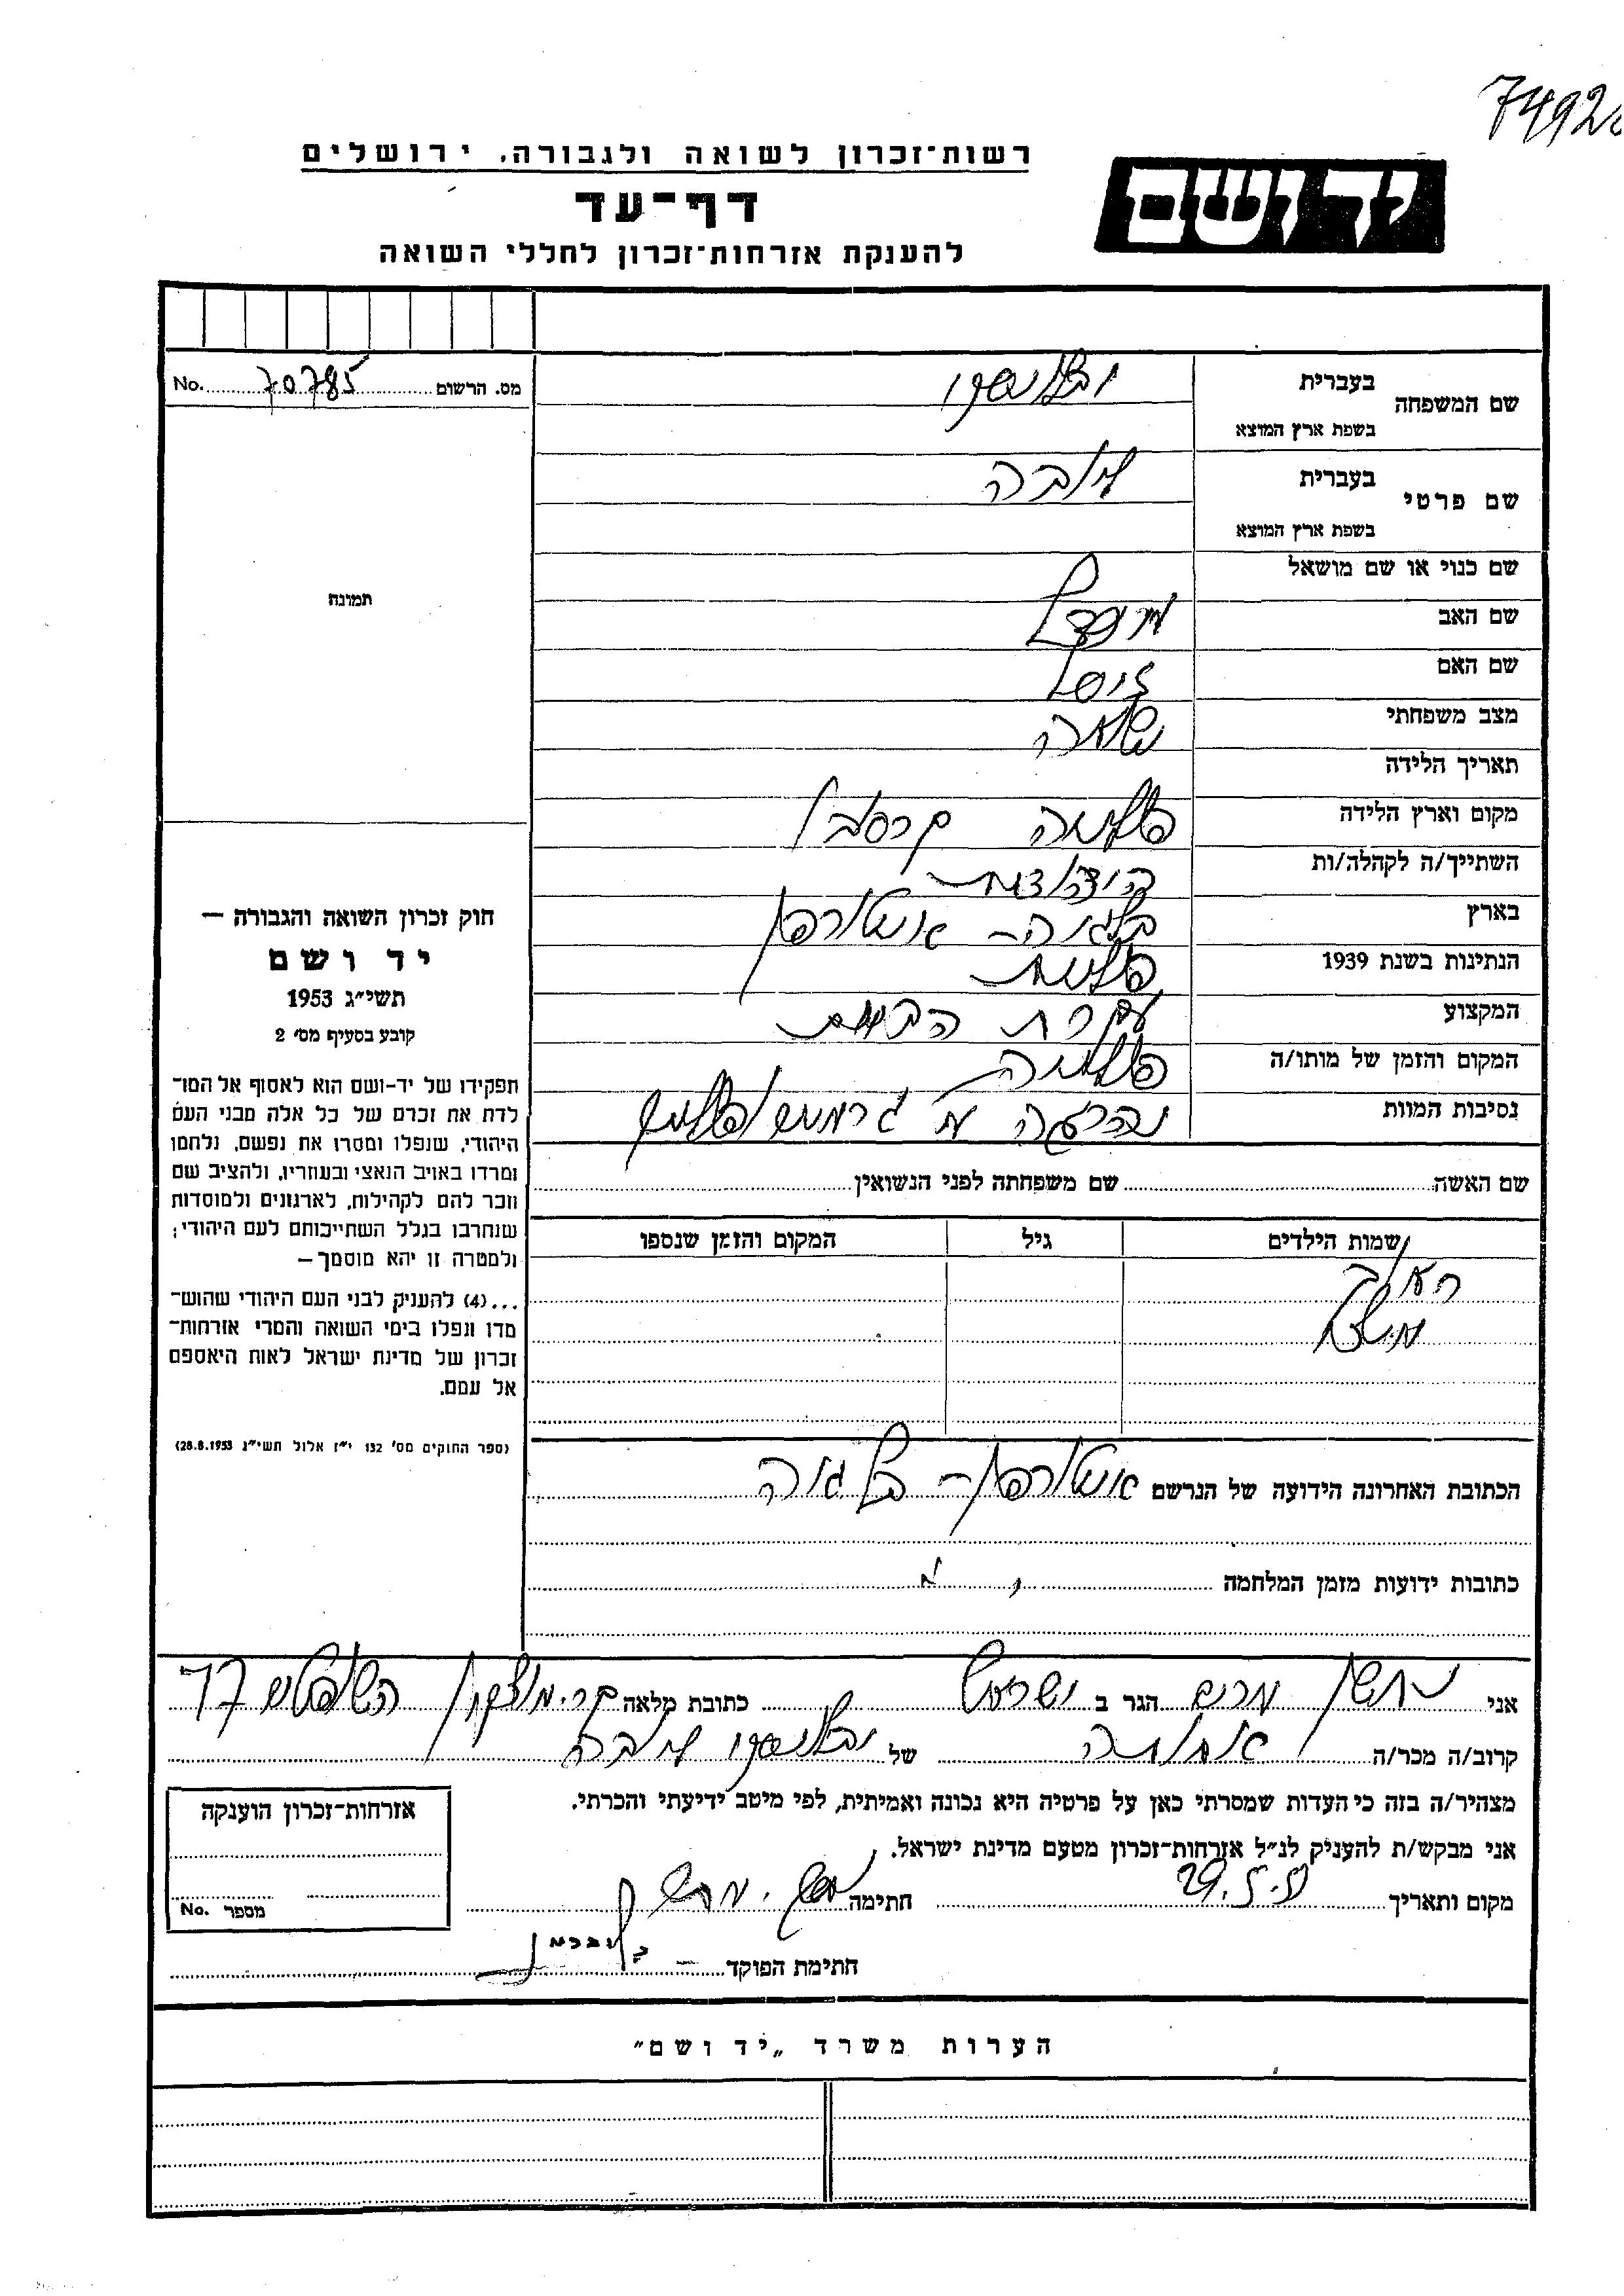 7492
רשות־זכרון לשואה ולגבורה, ירושלים
יד ושם
דף־עד
להענקת אזרחות־זכרון לחללי השואה
מס. הרשום 70785 No.
שם המשפחה בעברית
בשפת ארץ המוצא
שם פרטי בעברית
בשפת ארץ המוצא
שם כנוי או שם מושאל
שם האב
שם האם זיסל
מצב משפחתי נשואה
תאריך הלידה
מקום וארץ הלידה פולניה
השתייך/ה לקהלה/ות היהודית
בארץ בלגיה – אנטורפן
הנתינות בשנת 1939 פולנית
המקצוע עקרת הבית
המקום והזמן של מותו/ה פולניה
נסיבות המוות נהרגה
תמונה
חוק זכרון השואה והגבורה —
יד ושם
תשי״ג 1953
קובע בסעיף מס׳ 2
תפקידו של יד-ושם הוא לאסוף אל המו־
לדת את זכרם של כל אלה מבני העם
היהודי, שנפלו ומסרו את נפשם, נלחמו
ומרדו באויב הנאצי ובעוזריו, ולהציב שם
וזכר להם לקהילות, לארגונים ולמוסדות
שנחרבו בגלל השתייכותם לעם היהודי;
ולמטרה זו יהא מוסמך —
...(4) להעניק לבני העם היהודי שהוש־
מדו ונפלו בימי השואה והמרי אזרחות־
זכרון של מדינת ישראל לאות היאספם
אל עמם.
(ספר החוקים מס׳ 132 י״ז אלול תשי״ג 28.8.1953)
שם האשה שם משפחתה לפני הנשואין
שמות הילדים גיל המקום והזמן שנספו
הכתובת האחרונה הידועה של הנרשם אנטורפן – בלגיה
כתובות ידועות מזמן המלחמה
אני מרים הגר ב ישראל כתובת מלאה קר. מוצקין השופטים 77
קרוב/ה מכר/ה אחותה של
מצהיר/ה בזה כי העדות שמסרתי כאן על פרטיה היא נכונה ואמיתית, לפי מיטב ידיעתי והכרתי.
אני מבקש/ת להעניק לנ״ל אזרחות־זכרון מטעם מדינת ישראל.
מקום ותאריך 29.5. חתימה
חתימת הפוקד
אזרחות־זכרון הוענקה
מספר No.
הערות משרד „יד ושם”